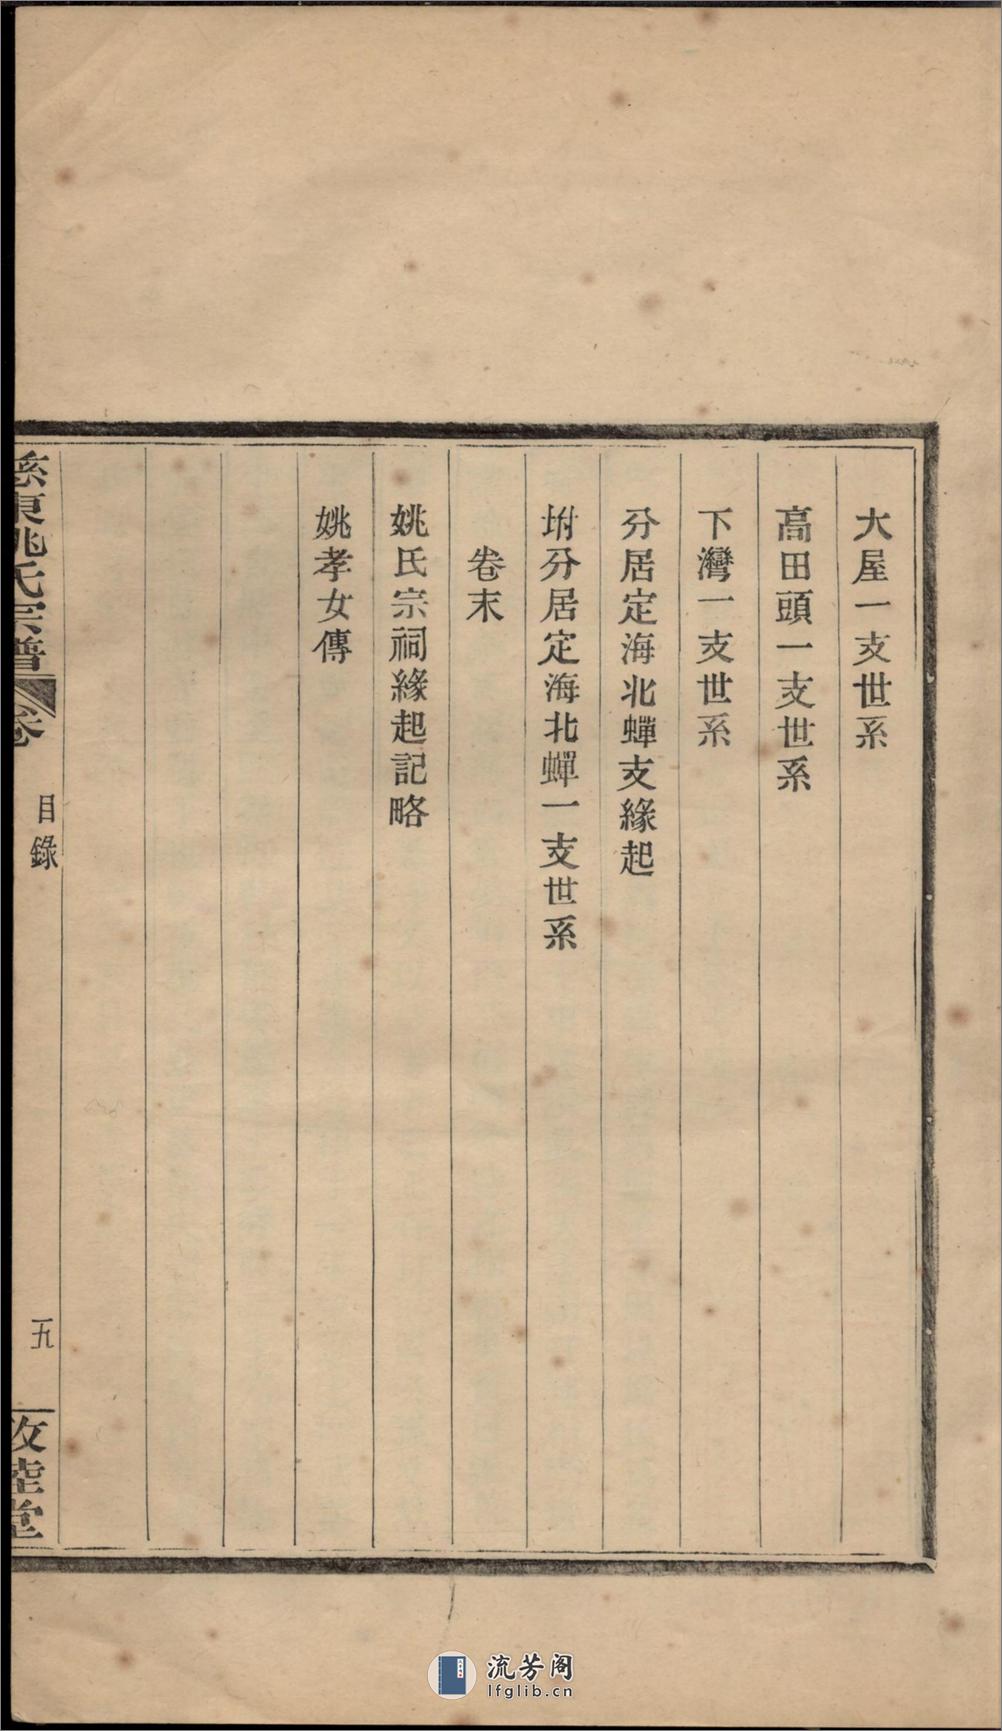 大屋一支世系
高田頭一支世系
下灣一支世系
分居定海北蟬支緣起
坿分居定海北蟬一支世系
卷末
姚氏宗祠緣起記略
姚孝女傳
東姚氏宗譜
卷
目錄
五
睦堂
流芳阁
lfglib.cn